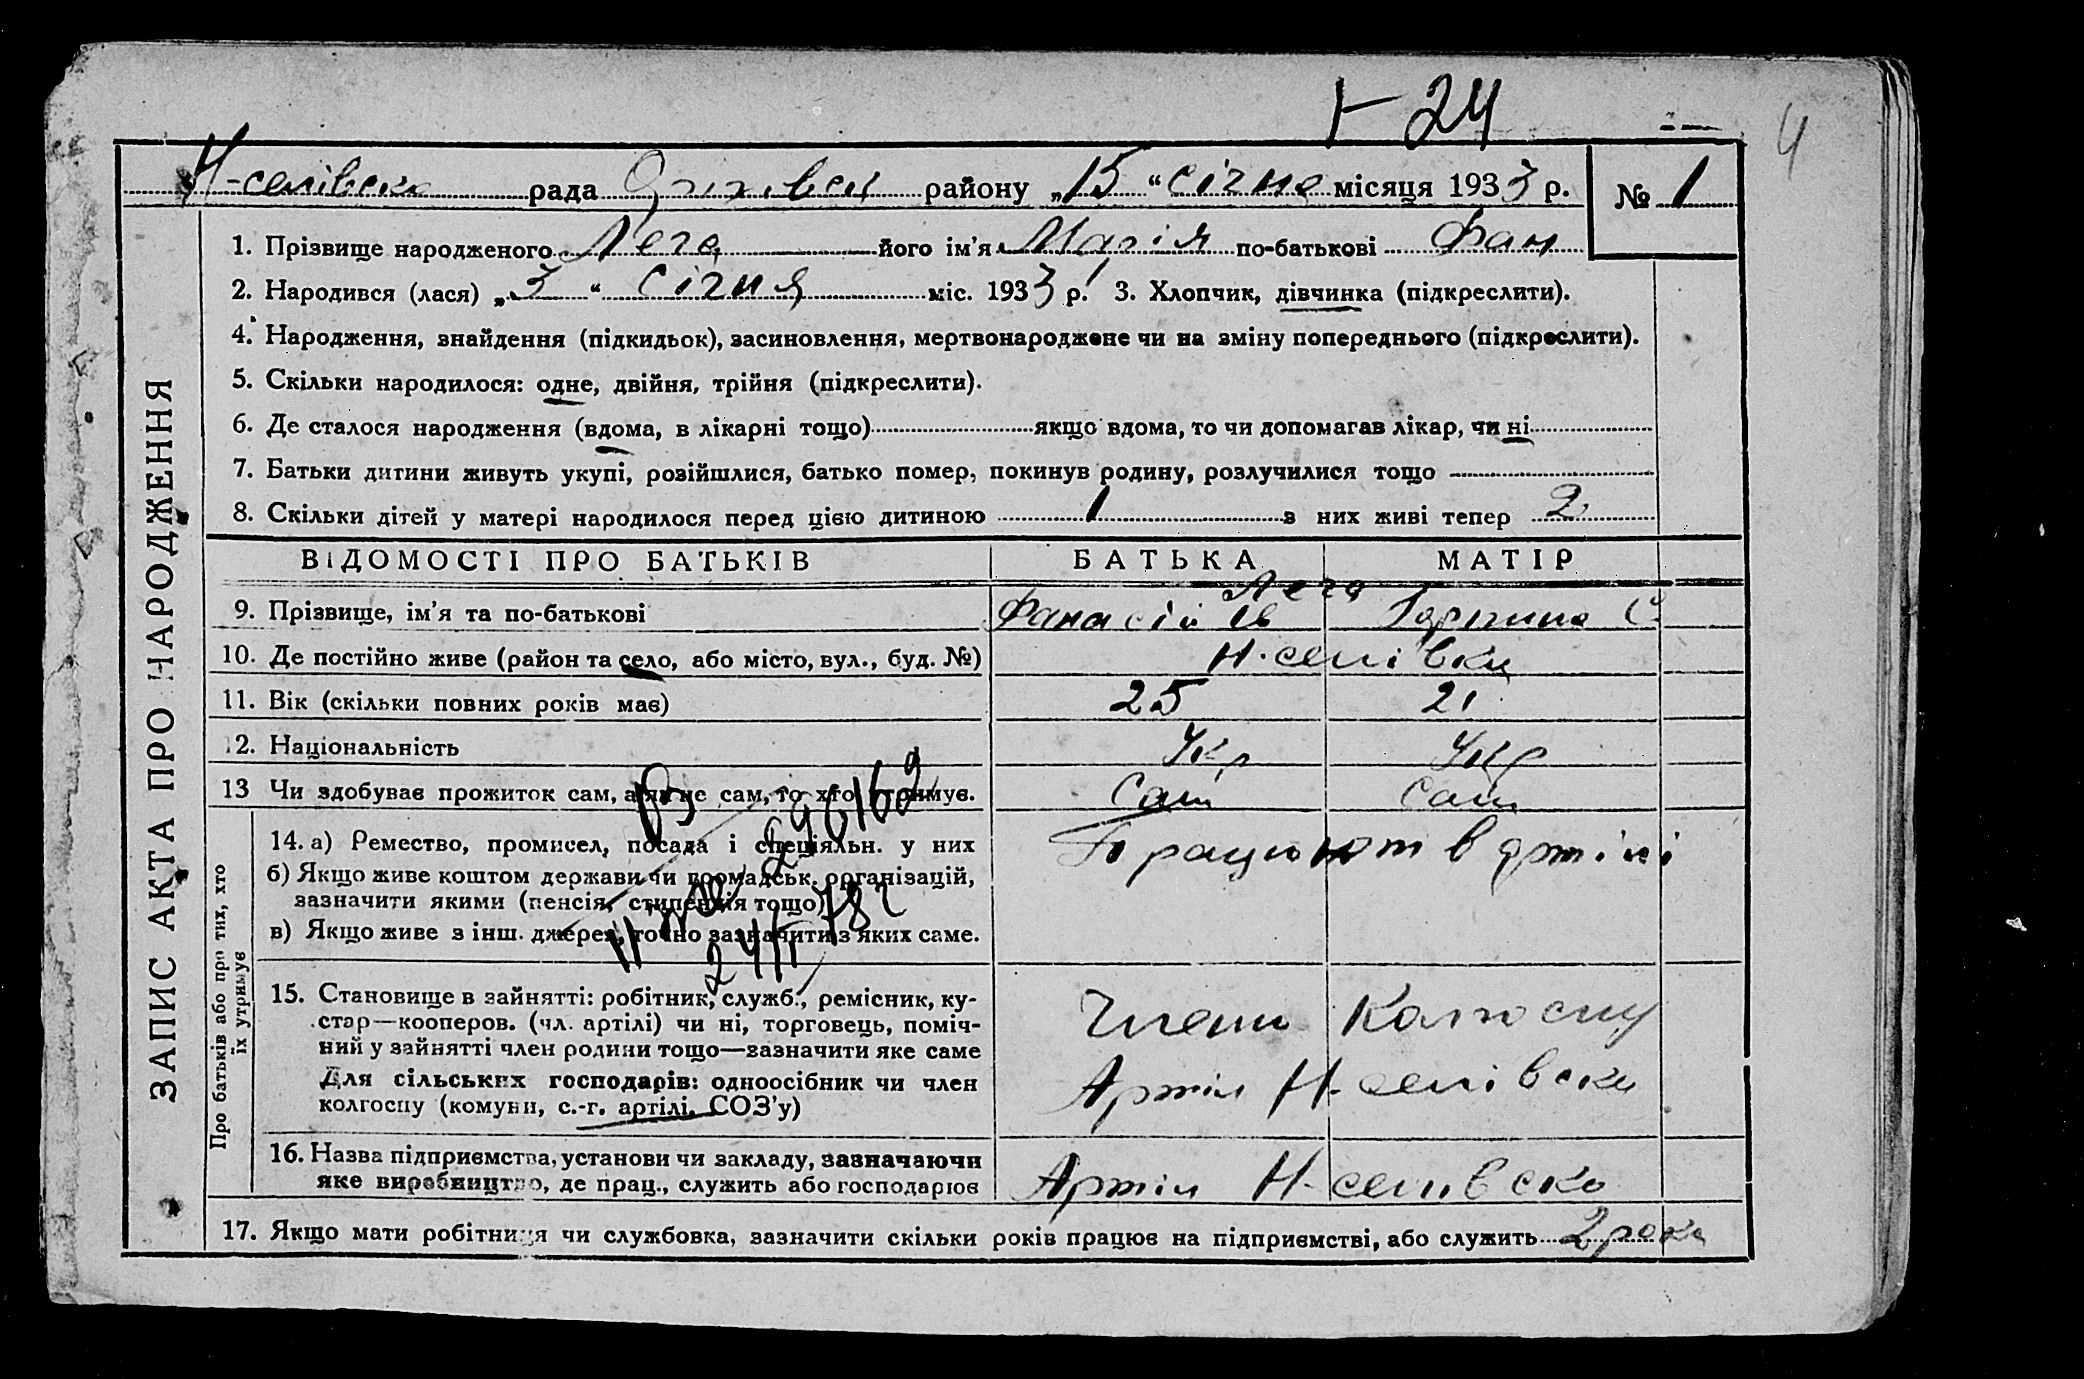 1-24
4
Н-селівська рада району „15“ січня місяця 1933 р. № 1
1. Прізвище народженого Лега його ім’я Марія по-батькові Фан
2. Народився (лася) „3“ січня міс. 1933 р. 3. Хлопчик, дівчинка (підкреслити).
4. Народження, знайдення (підкидьок), засиновлення, мертвонароджене чи на зміну попереднього (підкреслити).
5. Скільки народилося: одне, двійня, трійня (підкреслити).
6. Де сталося народження (вдома, в лікарні тощо) якщо вдома, то чи допомагав лікар, чи ні
7. Батьки дитини живуть укупі, розійшлися, батько помер, покинув родину, розлучилися тощо
8. Скільки дітей у матері народилося перед цією дитиною 1 з них живі тепер 2
ЗАПИС АКТА ПРО НАРОДЖЕННЯ
ВІДОМОСТІ ПРО БАТЬКІВ БАТЬКА МАТІР
Лега
9. Прізвище, ім’я та по-батькові Фанасій Ів С
10. Де постійно живе (район та село, або місто, вул., буд. №) Н-селівка
11. Вік (скільки повних років має) 25 21
12. Національність Укр Укр
13 Чи здобуває прожиток сам, а як не сам, то хто утримує. Сам Сам
Про батьків або про тих, хто
їх утримує
14. а) Ремество, промисел, посада і спеціяльн. у них Працюют в артілі
б) Якщо живе коштом держави чи громадськ. організацій,
зазначити якими (пенсія, стипендія тощо)
в) Якщо живе з інш. джерел, точно зазначити з яких саме.
15. Становище в зайнятті: робітник, служб., ремісник, ку-
стар—кооперов. (чл. артілі) чи ні, торговець, поміч-
ний у зайнятті член родини тощо—зазначити яке саме
Для сільських господарів: одноосібник чи член
колгоспу (комуни, с.-г. артілі, СОЗ’у)
Члени Колгоспу
Артіл Н-селівська
16. Назва підприємства, установи чи закладу, зазначаючи
яке виробництво, де прац., служить або господарює
Артіл Н-селівська
17. Якщо мати робітниця чи службовка, зазначити скільки років працює на підприємстві, або служить 2 роки